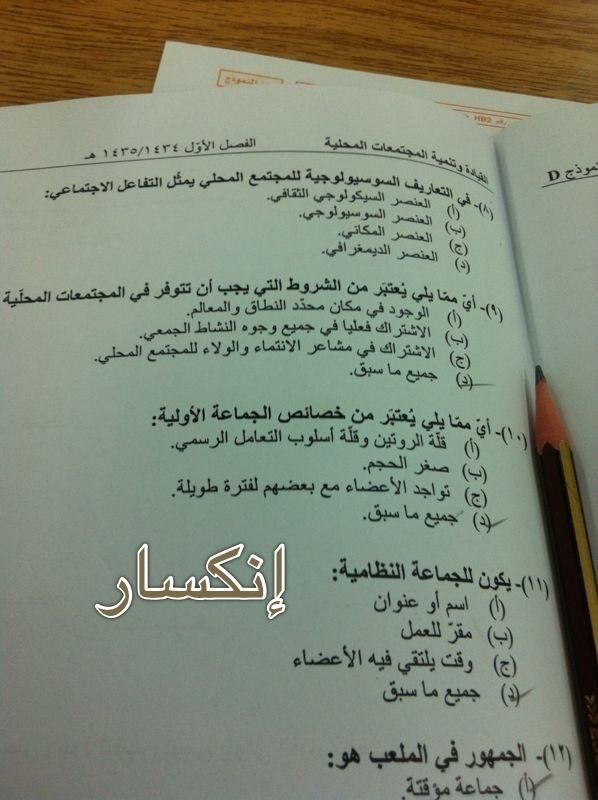 النموذج
HB2
القيادة وتنمية المجتمعات المحلية الفصل الأوّل ١٤٣٥/١٤٣٤ هـ
D
(٨)- في التعاريف السوسيولوجية للمجتمع المحلي يمثّل التفاعل الاجتماعي:
(أ) العنصر السيكولوجي الثقافي.
(ب) العنصر السوسيولوجي.
(ج) العنصر المكاني.
(د) العنصر الديمغرافي.
(٩)- أيّ ممّا يلي يُعتبَر من الشروط التي يجب أن تتوفر في المجتمعات المحلّية
(أ) الوجود في مكان محدّد النطاق والمعالم.
(ب) الاشتراك فعليا في جميع وجوه النشاط الجمعي.
(ج) الاشتراك في مشاعر الانتماء والولاء للمجتمع المحلي.
(د) جميع ما سبق.
(١٠)- أيّ ممّا يلي يُعتبَر من خصائص الجماعة الأولية:
(أ) قلّة الروتين وقلّة أسلوب التعامل الرسمي.
(ب) صغر الحجم.
(ج) تواجد الأعضاء مع بعضهم لفترة طويلة.
(د) جميع ما سبق.
إنكسار
(١١)- يكون للجماعة النظامية:
(أ) اسم أو عنوان
(ب) مقرّ للعمل
(ج) وقت يلتقي فيه الأعضاء
(د) جميع ما سبق
(١٢)- الجمهور في الملعب هو:
(أ) جماعة مؤقتة.